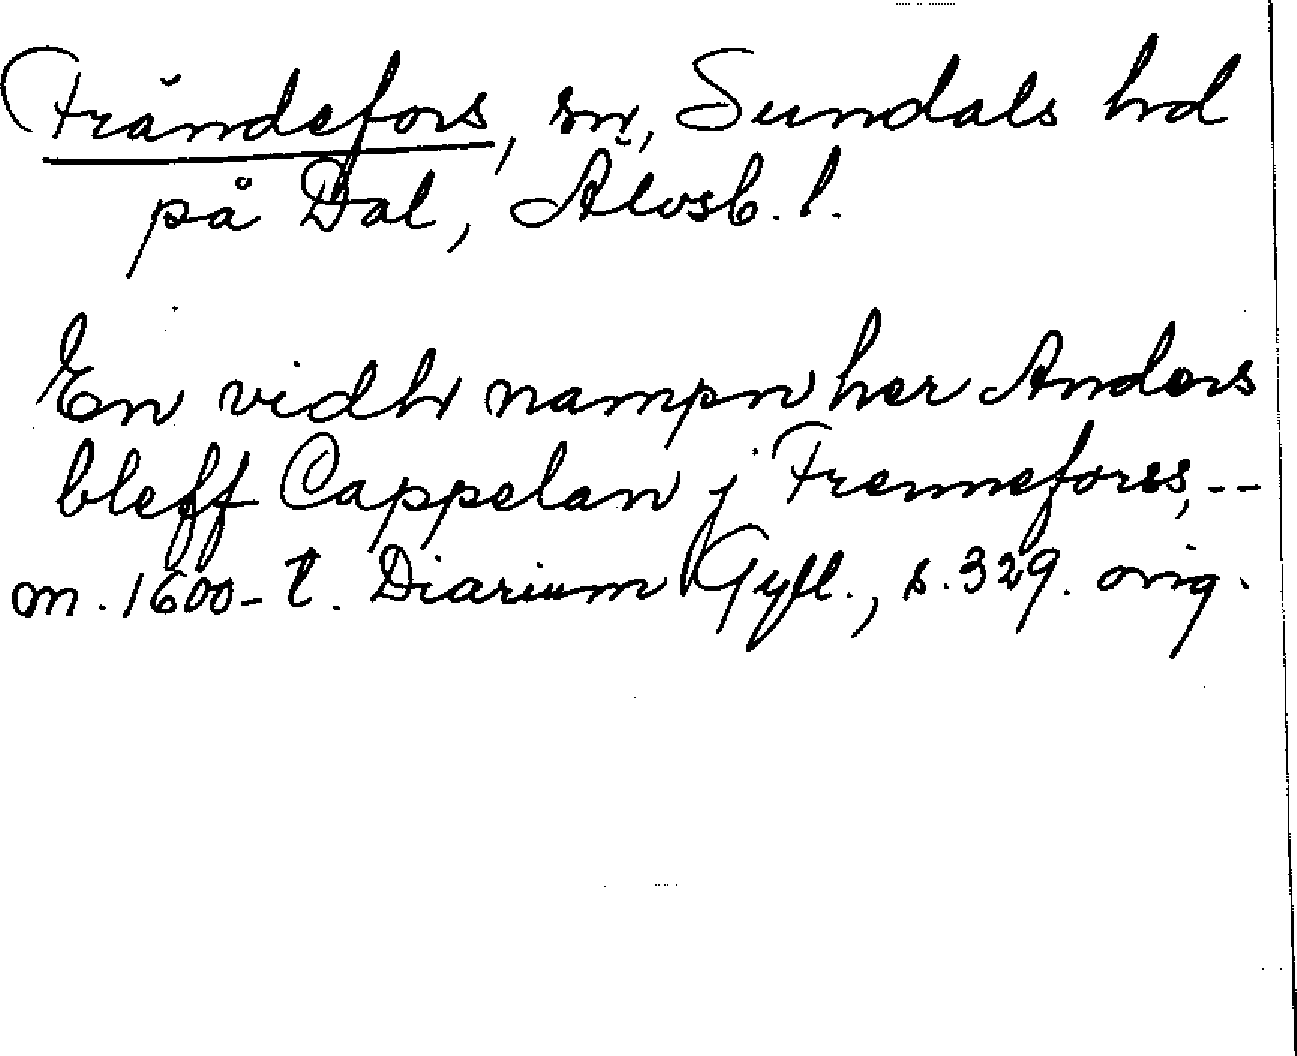 Frändefors, sn, Sundals hd
på Dal, Älvsb. l.
En vidh nampn her Anders
bleff Cappelan j Frenneforss, --
m. 1600-t. Diarium Gyll., s. 329. orig.